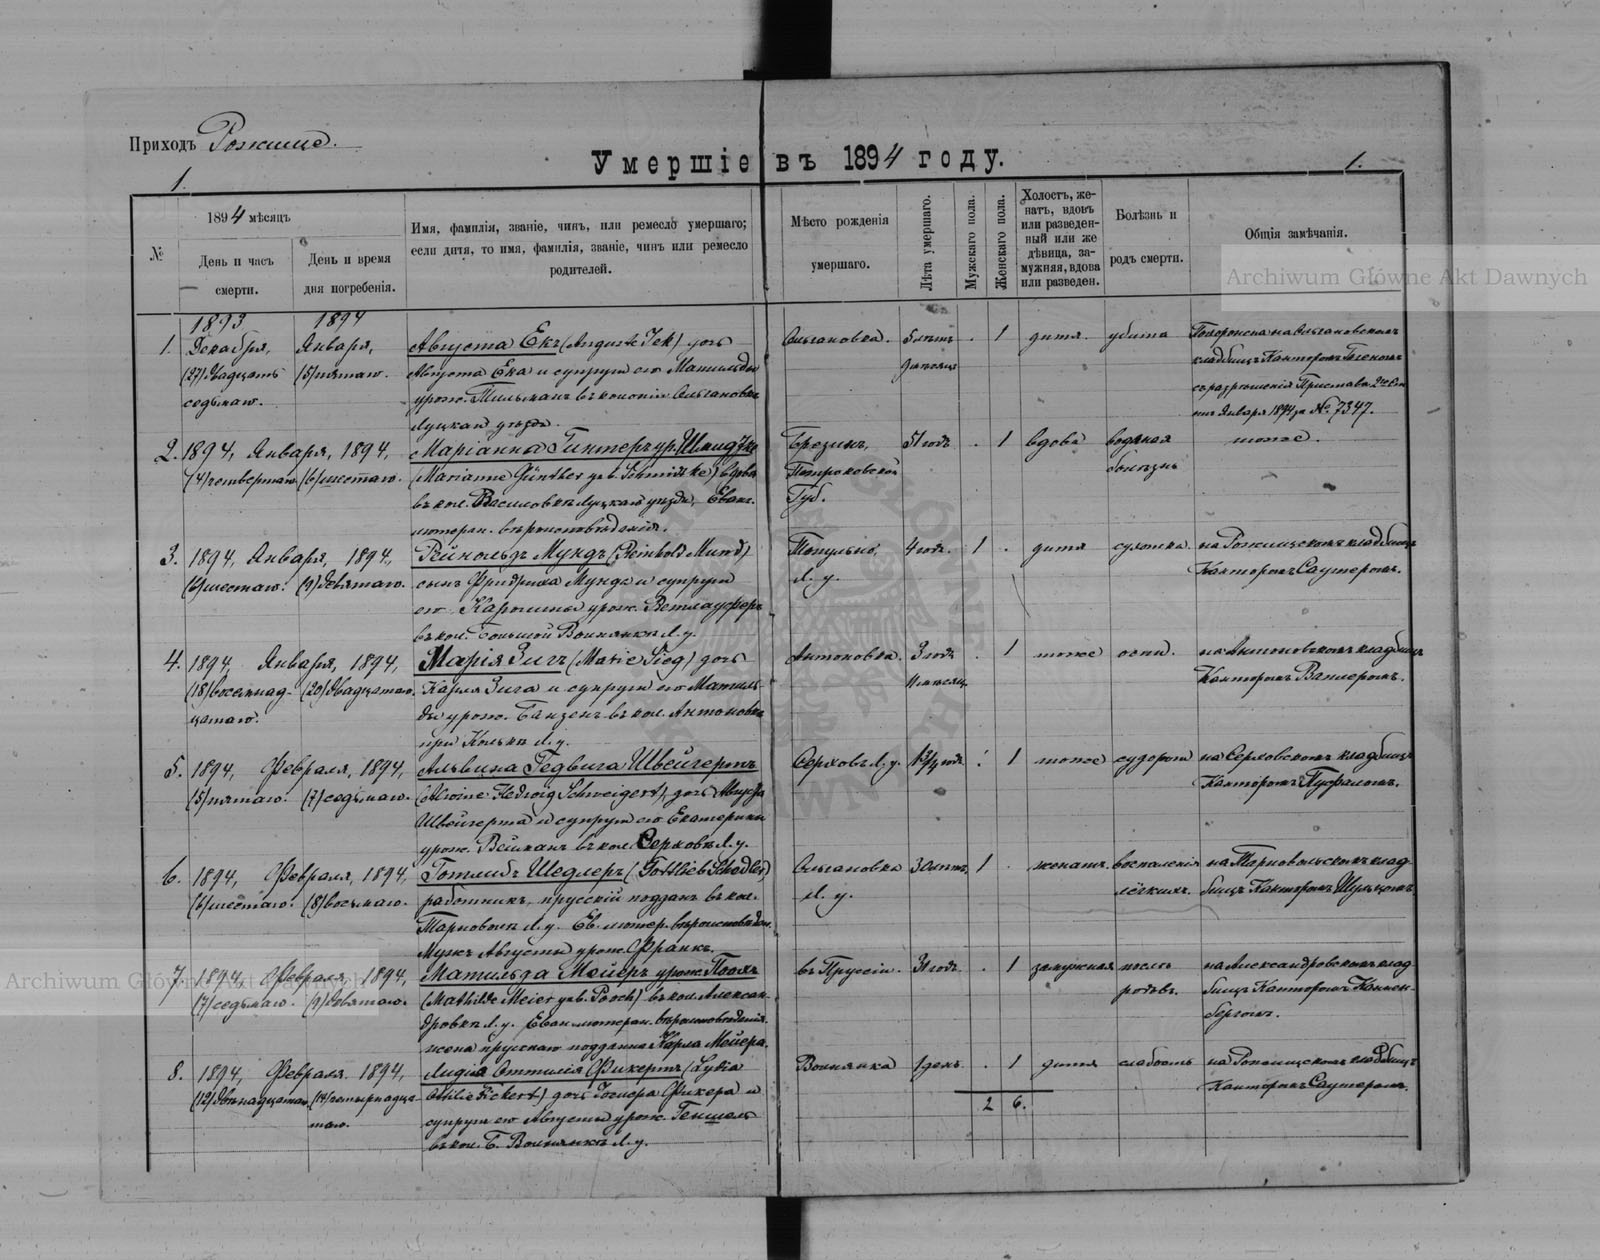 Приходъ Рожище.
Умершіе въ 1894 году.
1.
1.
№
1894 мѣсяцъ
День и часъ
смерти.
День и время
дня погребенія.
Имя, фамилія, званіе, чинъ, или ремесло умершаго;
если дитя, то имя, фамилія, званіе, чинъ или ремесло
родителей.
Мѣсто рожденія
умершаго.
Лѣта умершаго.
Мужскаго пола.
Женскаго пола.
Холостъ, же-
натъ, вдовъ
или разведен-
ный или же
дѣвица, за-
мужняя, вдова
или разведен.
Болѣзнь и
родъ смерти.
Общія замѣчанія.
Archiwum Główne Akt Dawnych
1.
1893
Декабря,
(27) двадцать
седьмаго.
1894
Января,
(5) пятаго.
Августа Екъ (Auguste Jek) дочь
Августа Ека и супруги его Матильды
урож. Тильманъ въ колоніи Ольгановка
Луцкаго уѣзда.
Ольгановка.
5 лѣтъ
9 мѣсяц.
. 1
дитя.
убита
Похоронена на Ольгановскомъ
кладбищѣ Канторомъ
съ разрѣшенія Пристава 2го
Января 1894 за №. 7347.
2.
1894, Января,
(4) четвертаго
1894.
(6) шестаго.
Маріанна Гинтеръ ур. Шмидтке
(Marianne Günther geb. Schmidtke) вдова
въ кол. Василовкѣ Луцкаго уѣзда, Еван.
лютеран. вѣроисповѣданія.
Брезинъ,
Петроковской
Губ.
51 годъ
. 1
вдова
водяная
болѣзнь
тоже.
3.
1894, Января,
(6) шестаго.
1894,
(9) девятаго.
Рейнольдъ Мундъ (Reinhold Mund)
сынъ Фридриха Мунда и супруги
его Каролины урож.
въ кол. Большой Волнянкѣ Л. у.
Топульно,
Л. у.
4 год.
1 .
дитя
сухотка.
на Рожищскомъ кладбищѣ
Канторомъ Саутеромъ.
4.
1894, Января,
(18) восемнад-
цатаго.
1894,
(20) двадцатаго.
Марія Зигъ (Marie Sieg) дочь
Карла Зига и супруги его Матиль-
ды урож. Банзенъ въ кол. Антоновка
при Колкѣ Л. у.
Антоновка.
3 годъ
11 мѣсяц.
. 1
тоже
оспа.
на Антоновскомъ кладбищѣ
Канторомъ Ваплеромъ.
5.
1894, Февраля,
(5) пятаго.
1894,
(7) седьмаго.
Альвина Гедвига Швейгертъ
(Alwine Hedwig Schweigert), дочь Августа
Швейгерта и супруги его Екатерины
урож. Вейманъ въ кол. Серховѣ Л. у.
Серховъ Л. у.
1 3/4 годъ
. 1
тоже
судороги
на Серховскомъ кладбищѣ
Канторомъ Пуфалемъ.
6.
1894, Февраля,
(6) шестаго.
1894,
(8) восьмаго.
Готлибъ Шедлеръ (Gottlieb Schedler)
работникъ, прусскій поддан. въ кол.
Тарновола Л. у. Ев. лютер. вѣроисповѣдан.
Мужъ Августы урож. Франкъ.
Ольгановка
Л. у.
30 лѣтъ
1 .
женатъ.
воспаленія
лёгкихъ.
на Тарновольскомъ клад-
бищѣ Канторомъ Шульцомъ.
7.
1894, Февраля,
(7) седьмаго.
1894,
(9) девятаго.
Матильда Мейеръ урож. Поохъ
(Mathilde Meier geb. Pooch) въ кол. Алексан-
дровкѣ Л. у. Еван. лютеран. вѣроисповѣданія.
жена прусскаго подданнаго Карла Мейера.
въ Пруссіи.
31 годъ
. 1
замужняя
послѣ
родовъ.
на Александровскомъ клад-
бищѣ Канторомъ Каннен-
бергомъ.
8.
1894, Февраля.
(12) двѣнадцатаго
1894,
(14) четырнадца-
таго.
Лидія Оттилія Фикертъ (Lydia
Ottilie Fickert) дочь Фикера и
супруги его Августы урож. Геншель
въ кол. Б. Волнянкѣ Л. у.
Волнянка
1 день.
. 1
дитя
слабость
на Рожищскомъ кладбищѣ
Канторомъ Саутеромъ.
2 6.
Archiwum Główne Akt Dawnych